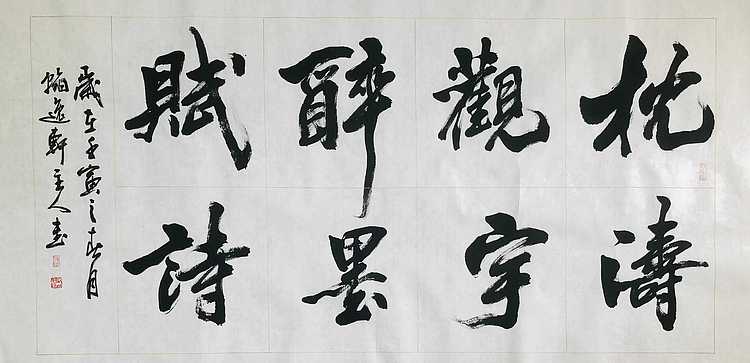 枕濤
觀宇
醉墨
賦詩
歲在壬寅之春月
逸軒主人書